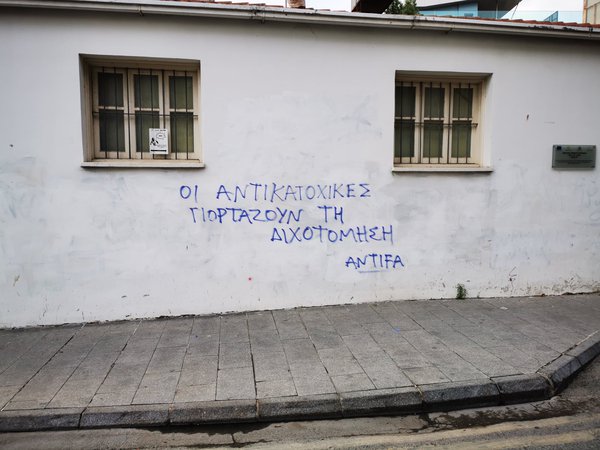 ΟΙ ΑΝΤΙΚΑΤΟΧΙΚΕΣ
ΓΙΟΡΤΑΖΟΥΝ ΤΗ
ΔΙΧΟΤΟΜΗΣΗ
ANTIFA